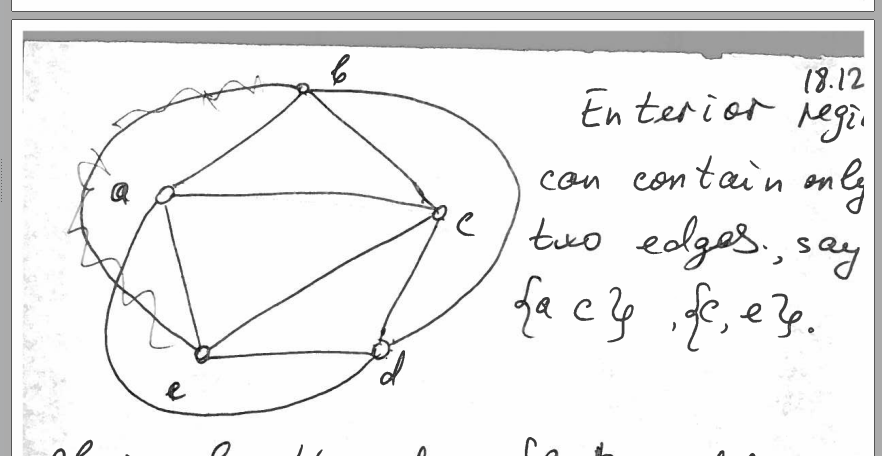 b
18.12
Enterior regi
a
can contain only
c
two edges., say
{a c}, {c, e}.
e
d